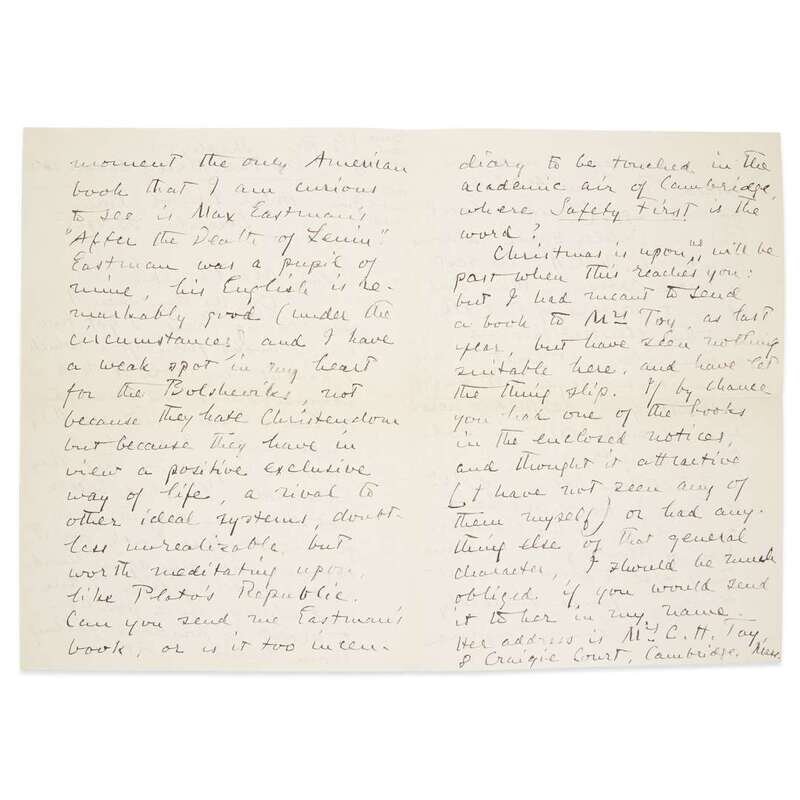 moment the only American
book that I am curious
to see is Max Eastman's
"After the Death of Lenin".
Eastman was a pupil of
mine, his English is re-
markably good (under the
circumstances) and I have
a weak spot in my heart
for the Bolsheviks, not
because they hate Christendom
but because they have in
view a positive exclusive
way of life, a rival to
other ideal systems, doubt-
less unrealizable, but
worth meditating upon,
like Plato's Republic.
Can you send me Eastman's
book, or is it too incen-
diary to be touched in the
academic air of Cambridge,
where Safety First is the
word?
Christmas is upon us, will be
past when this reaches you:
but I had meant to send
a book to Mrs Toy, as last
year, but have seen nothing
suitable here, and have let
the thing slip. If by chance
you had one of the books
in the enclosed notices,
and thought it attractive
(I have not seen any of
them myself) or had any-
thing else of that general
character, I should be much
obliged if you would send
it to her in my name.
Her address is Mrs C. H. Toy,
8 Craigie Court, Cambridge, Mass.